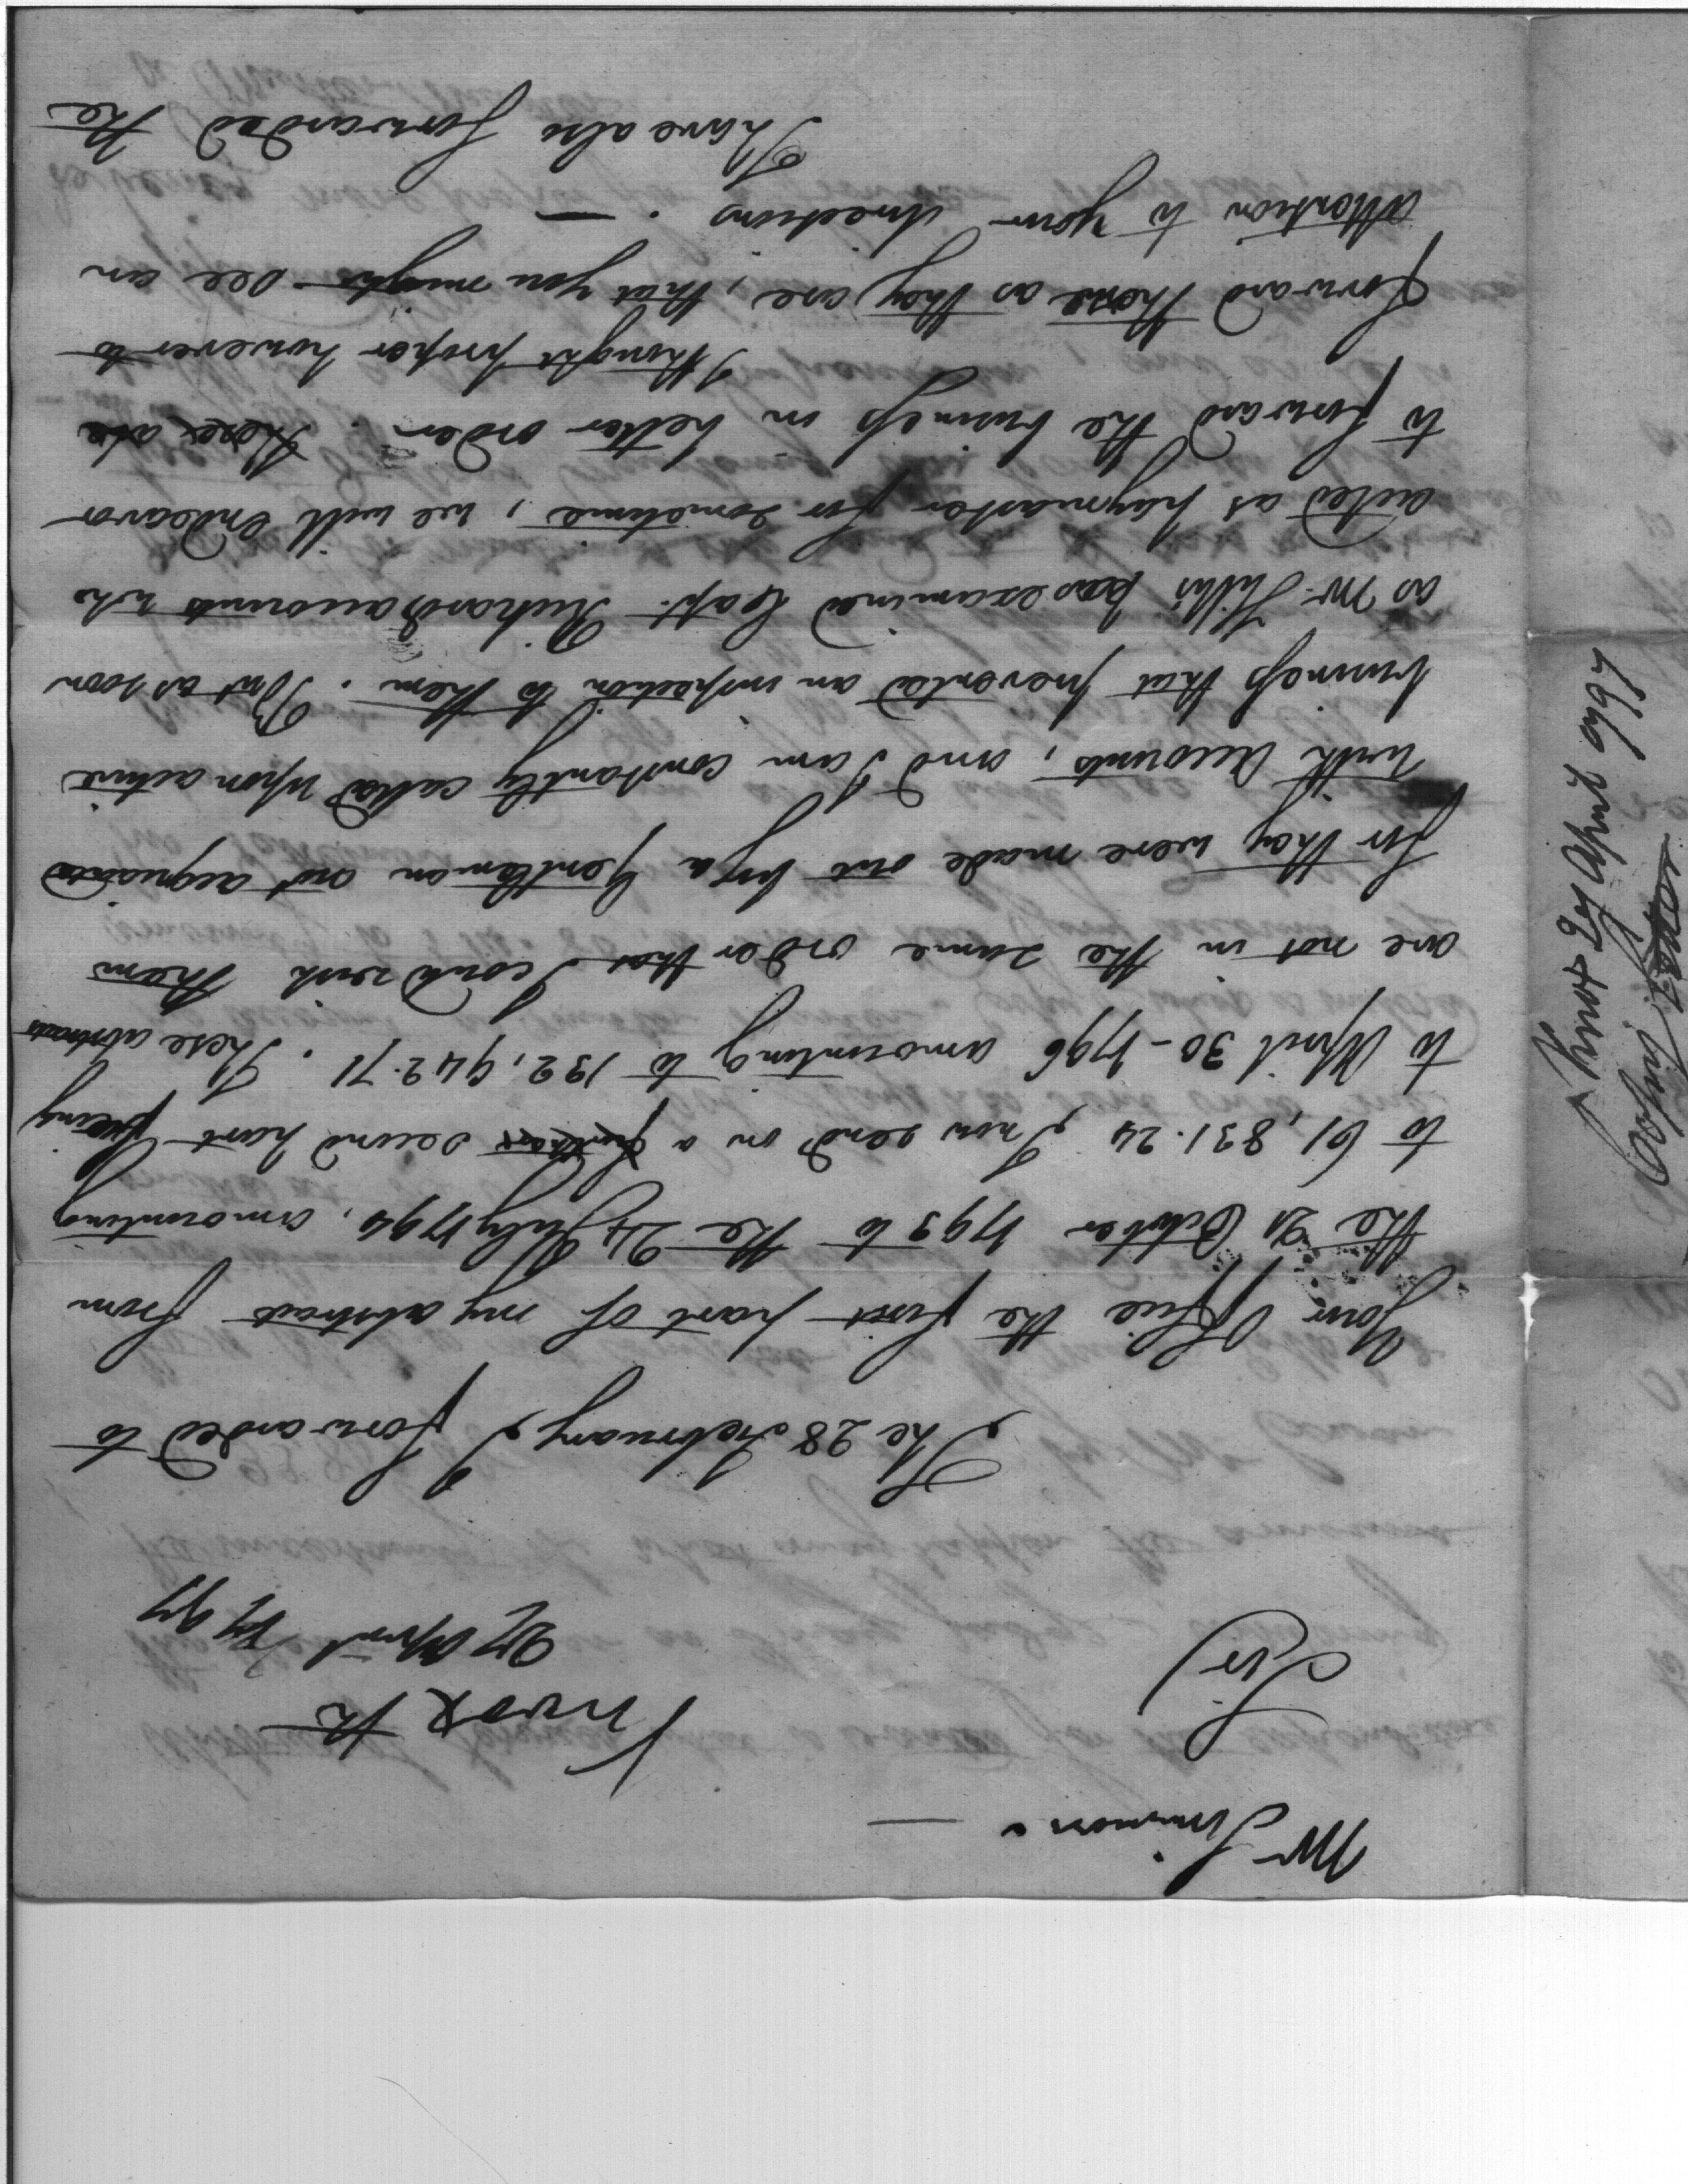 Mr Simmons —
Knox Ke
27 April 1797
Sir)
The 28 February I forwarded to
Your Office the first part of my abstract from
the 21 October 1793 to the 24 July 1794, amounting
to 61,831.24 I now send on a second part being
to April 30 - 1796 amounting to 132,942.71. These abstracts
are not in the same order that I could wish them
for they were made out by a Gentleman not acquainted
with accounts, and I am constantly called upon active
business that prevented an inspection to them. But as soon
as Mr. Hillis has examined Capt. Richards accounts who
acted as paymaster for sometime, we will endeavor
to forward the business in better order.
I thought proper however to
forward these as they are, that you might see an
attention to your directions. —
I have also forwarded the
Knox 27 April 1797
Copy